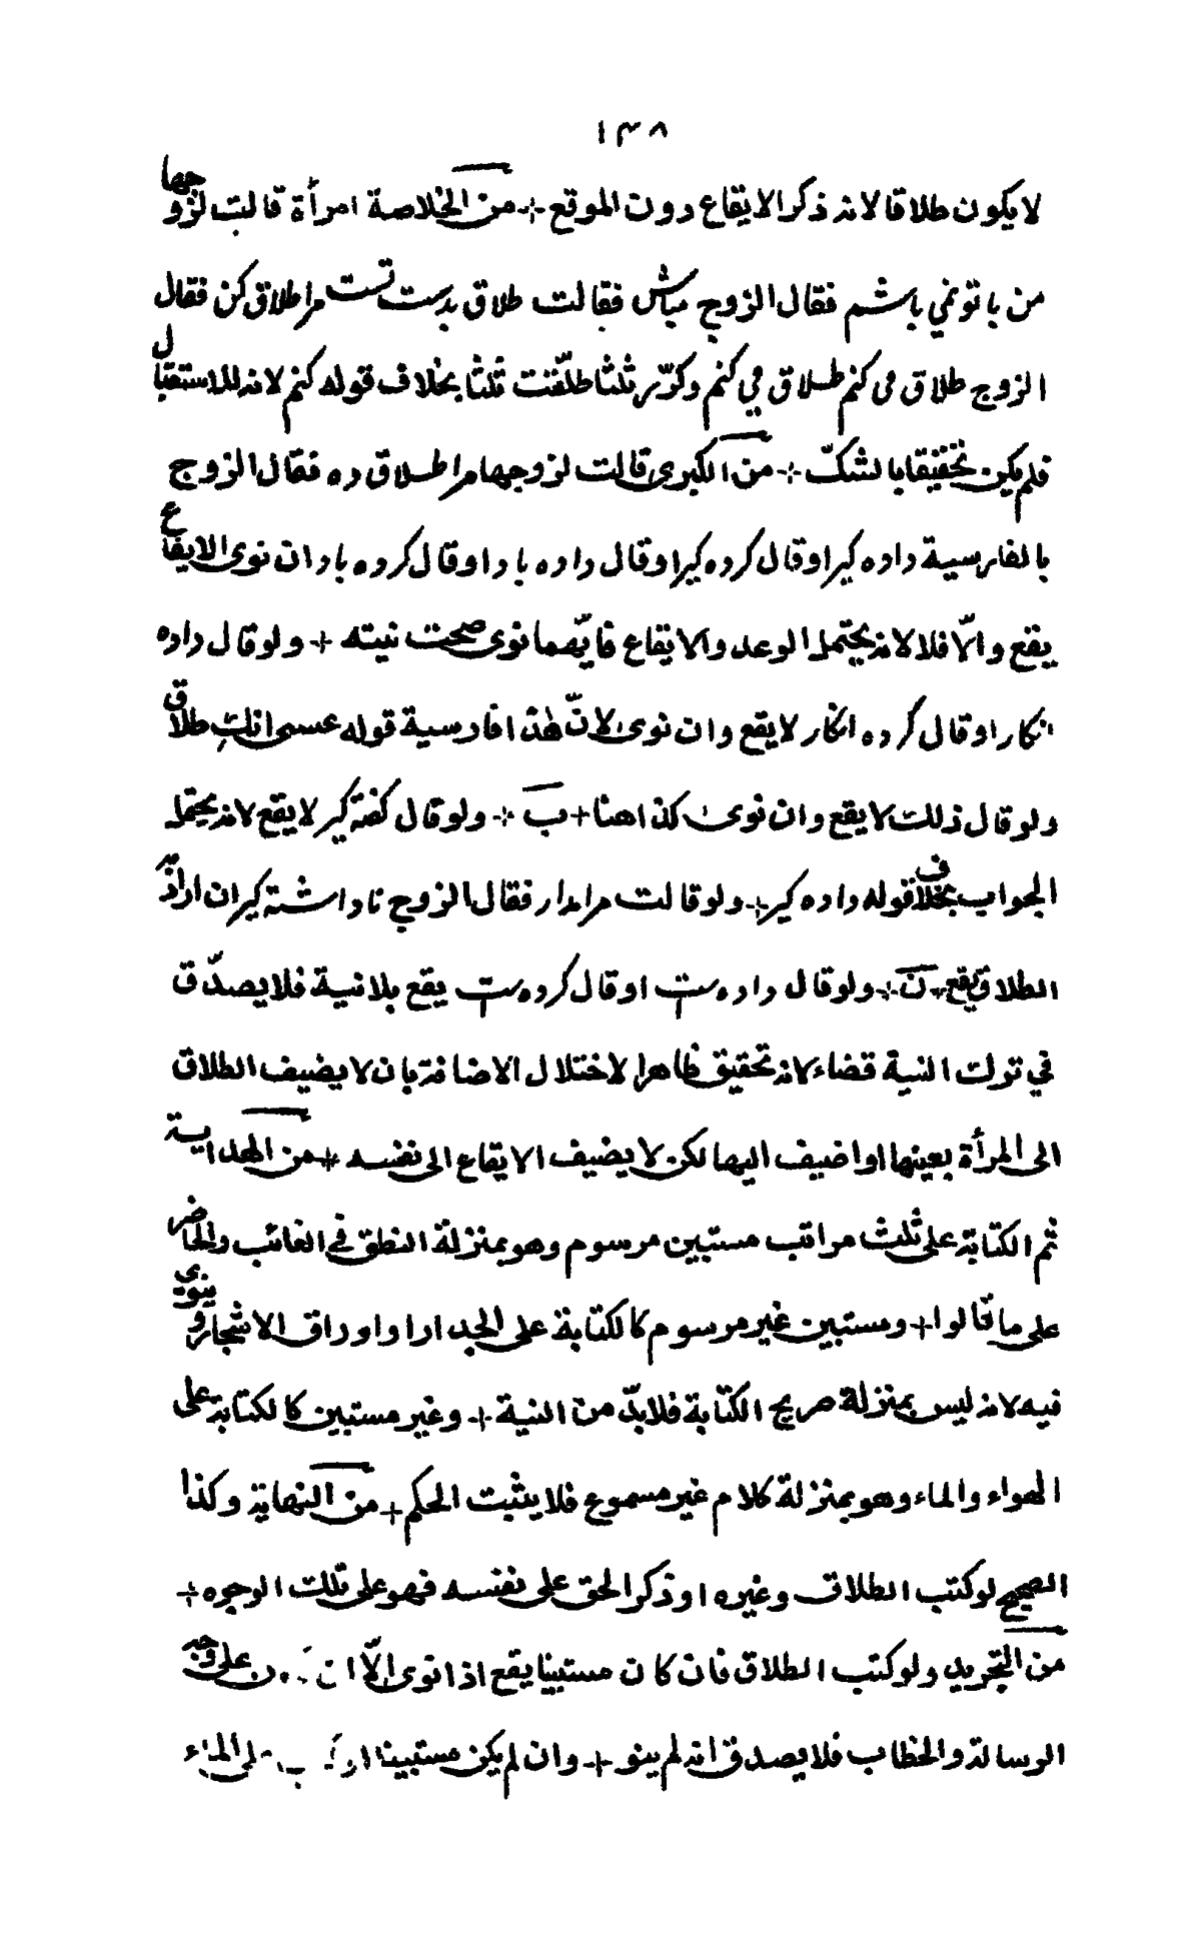 ١٣٨
لا يكون طلاقا لانه ذكر الايقاع دون الموقع + من الخلاصة امرأة قالت لزوجها
من با تو نمي باشم فقال الزوج مباش فقالت طلاق بدست تست مرا طلاق كن فقال
الزوج طلاق مى كنم طلاق مي كنم وكرّر ثلثا طلّقت ثلثا بخلاف قوله كنم لانه للاستقبال
فلم يكن تحقيقا بالشكّ + من الكبرى قالت لزوجها مرا طلاق ده فقال الزوج
بالفارسية داده كير او قال كرده كير او قال داده باد او قال كرده باد ان نوى الايقاع
يقع والّا فلا لانه يحتمل الوعد والايقاع فايّهما نوى صحت نيته + ولو قال داده
انكار او قال كرده انكار لا يقع وان نوى لانّ هذا فارسية قوله عسى انك طلاق
ولو قال ذلك لا يقع وان نوى كذا هنا + ب + ولو قال كفته كير لا يقع لانه يحتمل
الجواب بخلاف قوله داده كير + ولو قالت مرا مدار فقال الزوج نا داشته كير ان اراد به
الطلاق يقع + ن + ولو قال داده ست او قال كرده ست يقع بلا نية فلا يصدّق
في ترك النية قضاء لانه تحقيق ظاهرا لاختلال الاضافة بان لا يضيف الطلاق
الى المرأة بعينها او اضيف اليها لكن لا يضيف الايقاع الى نفسه + من الهداية
ثم الكتابة على ثلث مراتب مستبين مرسوم وهو بمنزلة النطق في الغائب والحاضر
على ما قالوا + ومستبين غير مرسوم كالكتابة على الجدار او اوراق الاشجار وينوى
فيه لانه ليس بمنزلة صريح الكتابة فلا بدّ من النية + وغير مستبين كالكتابة على
الهواء والماء وهو بمنزلة كلام غير مسموع فلا يثبت الحكم + من النهاية وكذا
الصحيح لو كتب الطلاق وغيره او ذكر الحق على نفسه فهو على تلك الوجوه +
من التجريد ولو كتب الطلاق فان كان مستبينا يقع اذا نوى الّا ان على وجه
الرسالة والخطاب فلا يصدق انه لم ينو + وان لم يكن مستبينا الماء